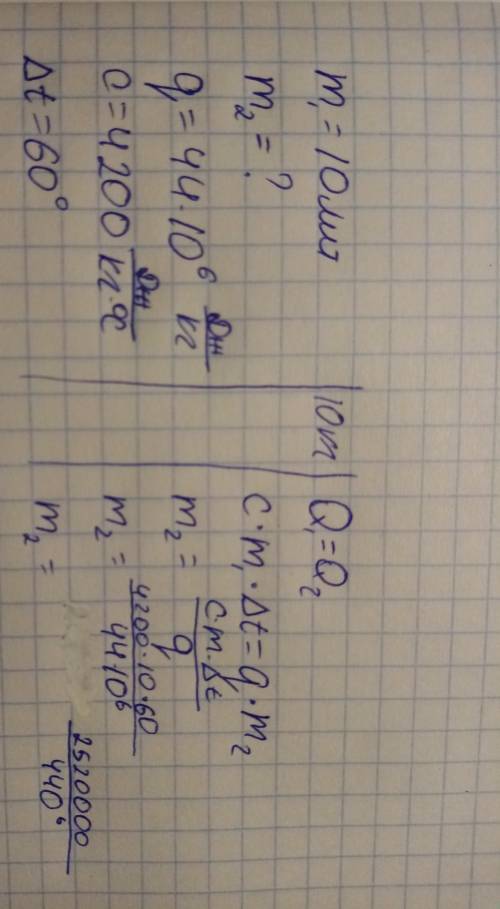 m₁ = 10лит
m₂ = ?
q = 44·10⁶ Дж/кг
c = 4200 Дж/кг·°C
Δt = 60°
10м
Q₁ = Q₂
c·m₁·Δt = q·m₂
m₂ = c·m·Δt/q
m₂ = 4200·10·60/44·10⁶
m₂ = 2520000/440⁶